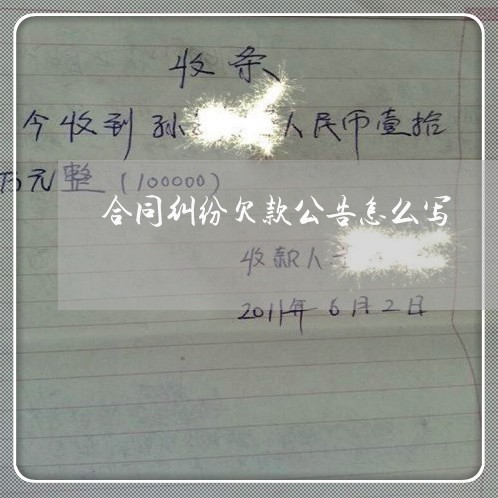 收条
今收到孙 人民币壹拾
万元整(100000)
合同纠纷欠款公告怎么写
收款人
2011年6月2日